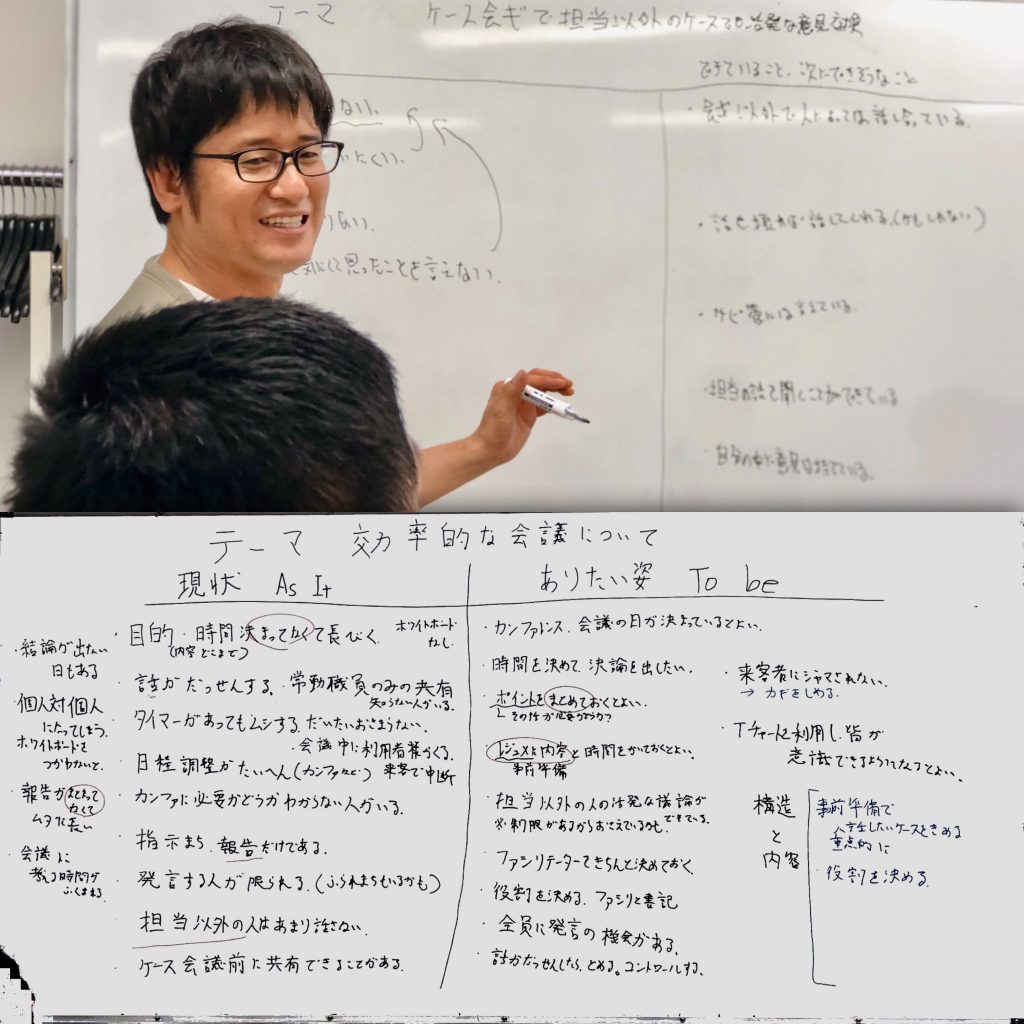 テーマ ケース会ギで担当以外のケースでも活発な意見交換
できていること、次にできそうなこと
ない。
にくい。
ない。
思ったことを言えない。
・会ギ以外で人によっては話し合っている。
・話せば話してくれる(かもしれない)
・サビ管には言えている。
・担当の話を聞くことができている
・自分の中に意見は持てている。
テーマ 効率的な会議について
現状 As It
・目的・時間決まってなくて長びく。 ホワイトボード
なし。
(内容どこまで)
・話がだっせんする。・常勤職員のみの共有
知らない人がいる。
・タイマーがあってもムシする だいたいおさまらない。
・会議中に利用者様がくる。
・日程調整がたいへん(カンファなど) 来客で中断
・カンファに必要かどうかわからない人がいる。
・指示まち、報告だけである。
・発言する人が限られる。(ふられまちもいるかも)
・担当以外の人はあまり話さない。
・ケース会議前に共有できることがある。
・結論が出ない
日もある
・個人対個人
になってしまう。
ホワイトボードを
つかわないと、
・報告がまとまって
なくて
ムダに長い
・会議に
考える時間が
ふくまれる
ありたい姿 To be
・カンファレンス、会議の日が決まっているとよい。
・時間を決めて、決論を出したい。
・ポイントをまとめておくとよい。
・レジュメに内容と時間をかいておくとよい。
事前準備
・担当以外の人の活発な議論が
できている。
※制限があるからおさえているかも
・ファシリテーターできちんと決めておく
・役割を決める、ファシリと書記
・全員に発言の機会がある。
・話がだっせんしたら、とめる。コントロールする。
・来客者にジャマされない。
→ カギをしめる。
・Tチャートを利用し、皆が
意識できるようになるとよい。
構造
と
内容
事前準備で
話したいケースをきめる
重点的に
・役割を決める。